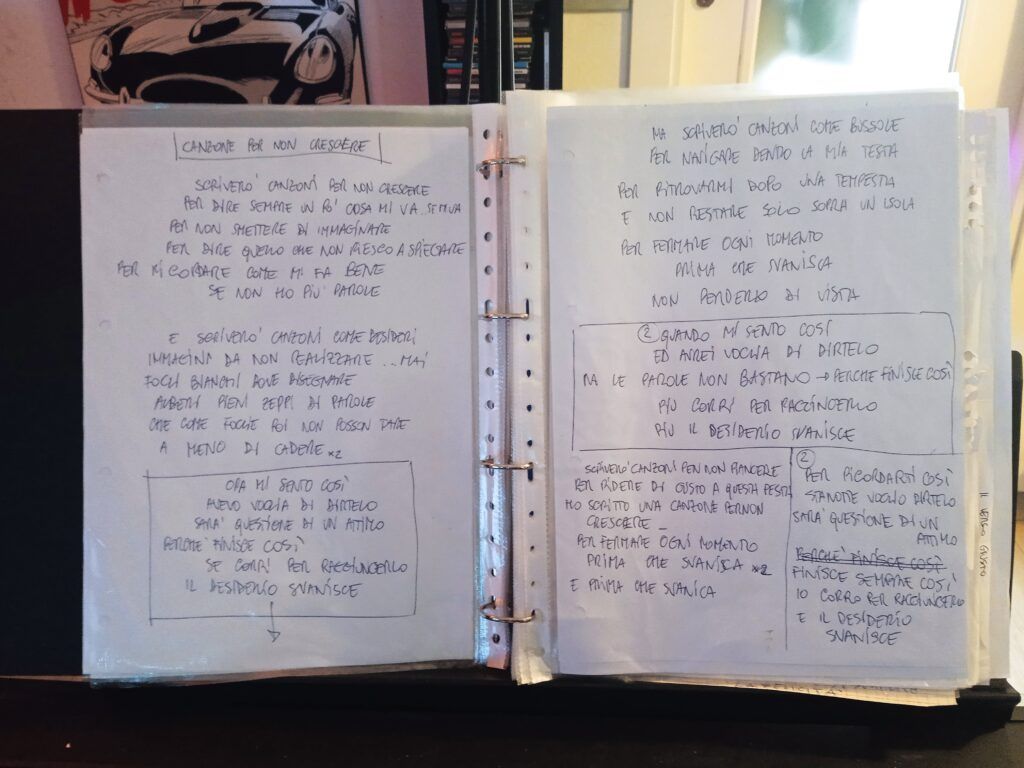 CANZONE PER NON CRESCERE
SCRIVERO' CANZONI PER NON CRESCERE
PER DIRE SEMPRE UN PO' COSA MI VA..SEMVA
PER NON SMETTERE DI IMMAGINARE
PER DIRE QUELLO CHE NON RIESCO A SPIEGARE
PER RICORDARE COME MI FA BENE
SE NON HO PIU' PAROLE
E SCRIVERO' CANZONI COME DESIDERI
IMMAGINI DA NON REALIZZARE ...MAI
FOGLI BIANCHI DOVE DISEGNARE
ALBERI PIENI ZEPPI DI PAROLE
CHE COME FOGLIE POI NON POSSON FARE
A MENO DI CADERE x2
ORA MI SENTO COSÌ
AVEVO VOGLIA DI DIRTELO
SARA' QUESTIONE DI UN ATTIMO
PERCHE' FINISCE COSÌ
SE CORRI PER RAGGIUNGERLO
IL DESIDERIO SVANISCE
MA SCRIVERO' CANZONI COME BUSSOLE
PER NAVIGARE DENTRO LA MIA TESTA
PER RITROVARMI DOPO UNA TEMPESTA
E NON RESTARE SOLO SOPRA UN ISOLA
PER FERMARE OGNI MOMENTO
PRIMA CHE SVANISCA
NON PERDERLO DI VISTA
② QUANDO MI SENTO COSÌ
ED AVREI VOGLIA DI DIRTELO
MA LE PAROLE NON BASTANO → PERCHE FINISCE COSÌ
PIU CORRI PER RAGGIUNGERLO
PIU IL DESIDERIO SVANISCE
SCRIVERO' CANZONI PER NON PIANGERE
PER RIDERE DI GUSTO A QUESTA FESTA
HO SCRITTO UNA CANZONE PER NON
CRESCERE _
PER FERMARE OGNI MOMENTO
PRIMA CHE SVANISCA x2
E PRIMA CHE SVANICA
②
PER RICORDARTI COSÌ
STANOTTE VOGLIO DIRTELO
SARA' QUESTIONE DI UN
ATTIMO
PERCHE' FINISCE COSÌ
FINISCE SEMPRE COSÌ
IO CORRO PER RAGGIUNGERLO
E IL DESIDERIO
SVANISCE
IL VERSO GIUSTO